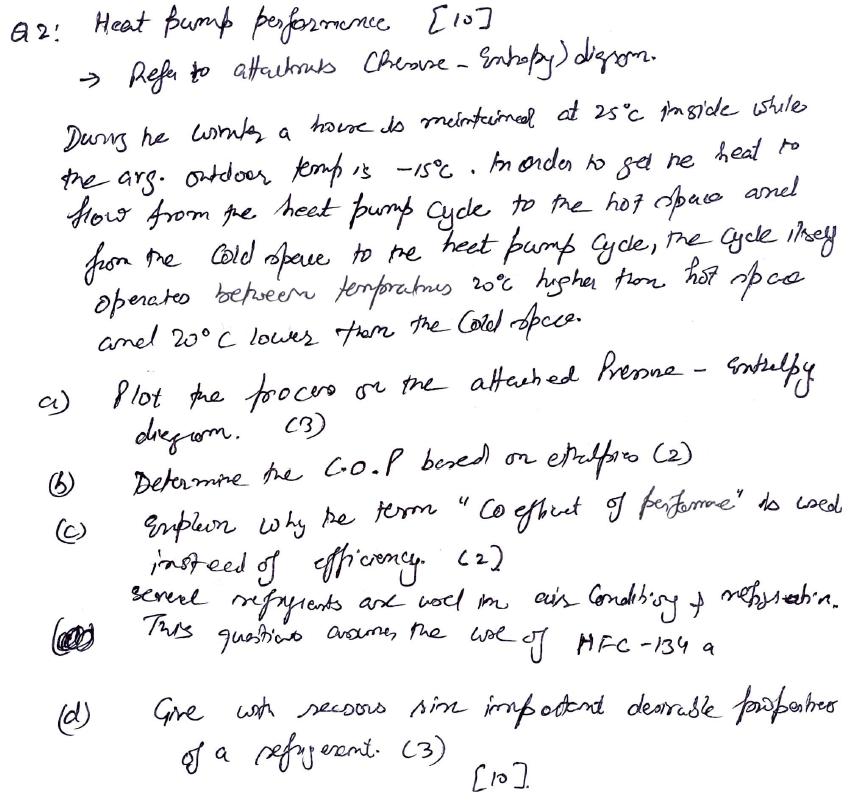 Q2: Heat pump performance [10]
→ Refer to attachments (Pressure - Enthalpy) diagram.
During he winter a house is maintained at 25°C inside while
the avg. outdoor temp is -15°C. In order to get he heat to
flow from the heat pump cycle to the hot space and
from the cold space to the heat pump cycle, the cycle itself
operates between temperatures 20°C higher than hot space
and 20°C lower than the cold space.
a) Plot the process on the attached Pressure - Enthalpy
diagram. (3)
(b) Determine the C.O.P based on enthalpies (2)
(c) Explain why the term "Coefficient of performance" is used
instead of efficiency. (2)
several refrigerants are used in air conditioning & refrigeration.
This questions assumes the use of HFC-134a
(d) Give with reasons six important desirable properties
of a refrigerant. (3)
[10]